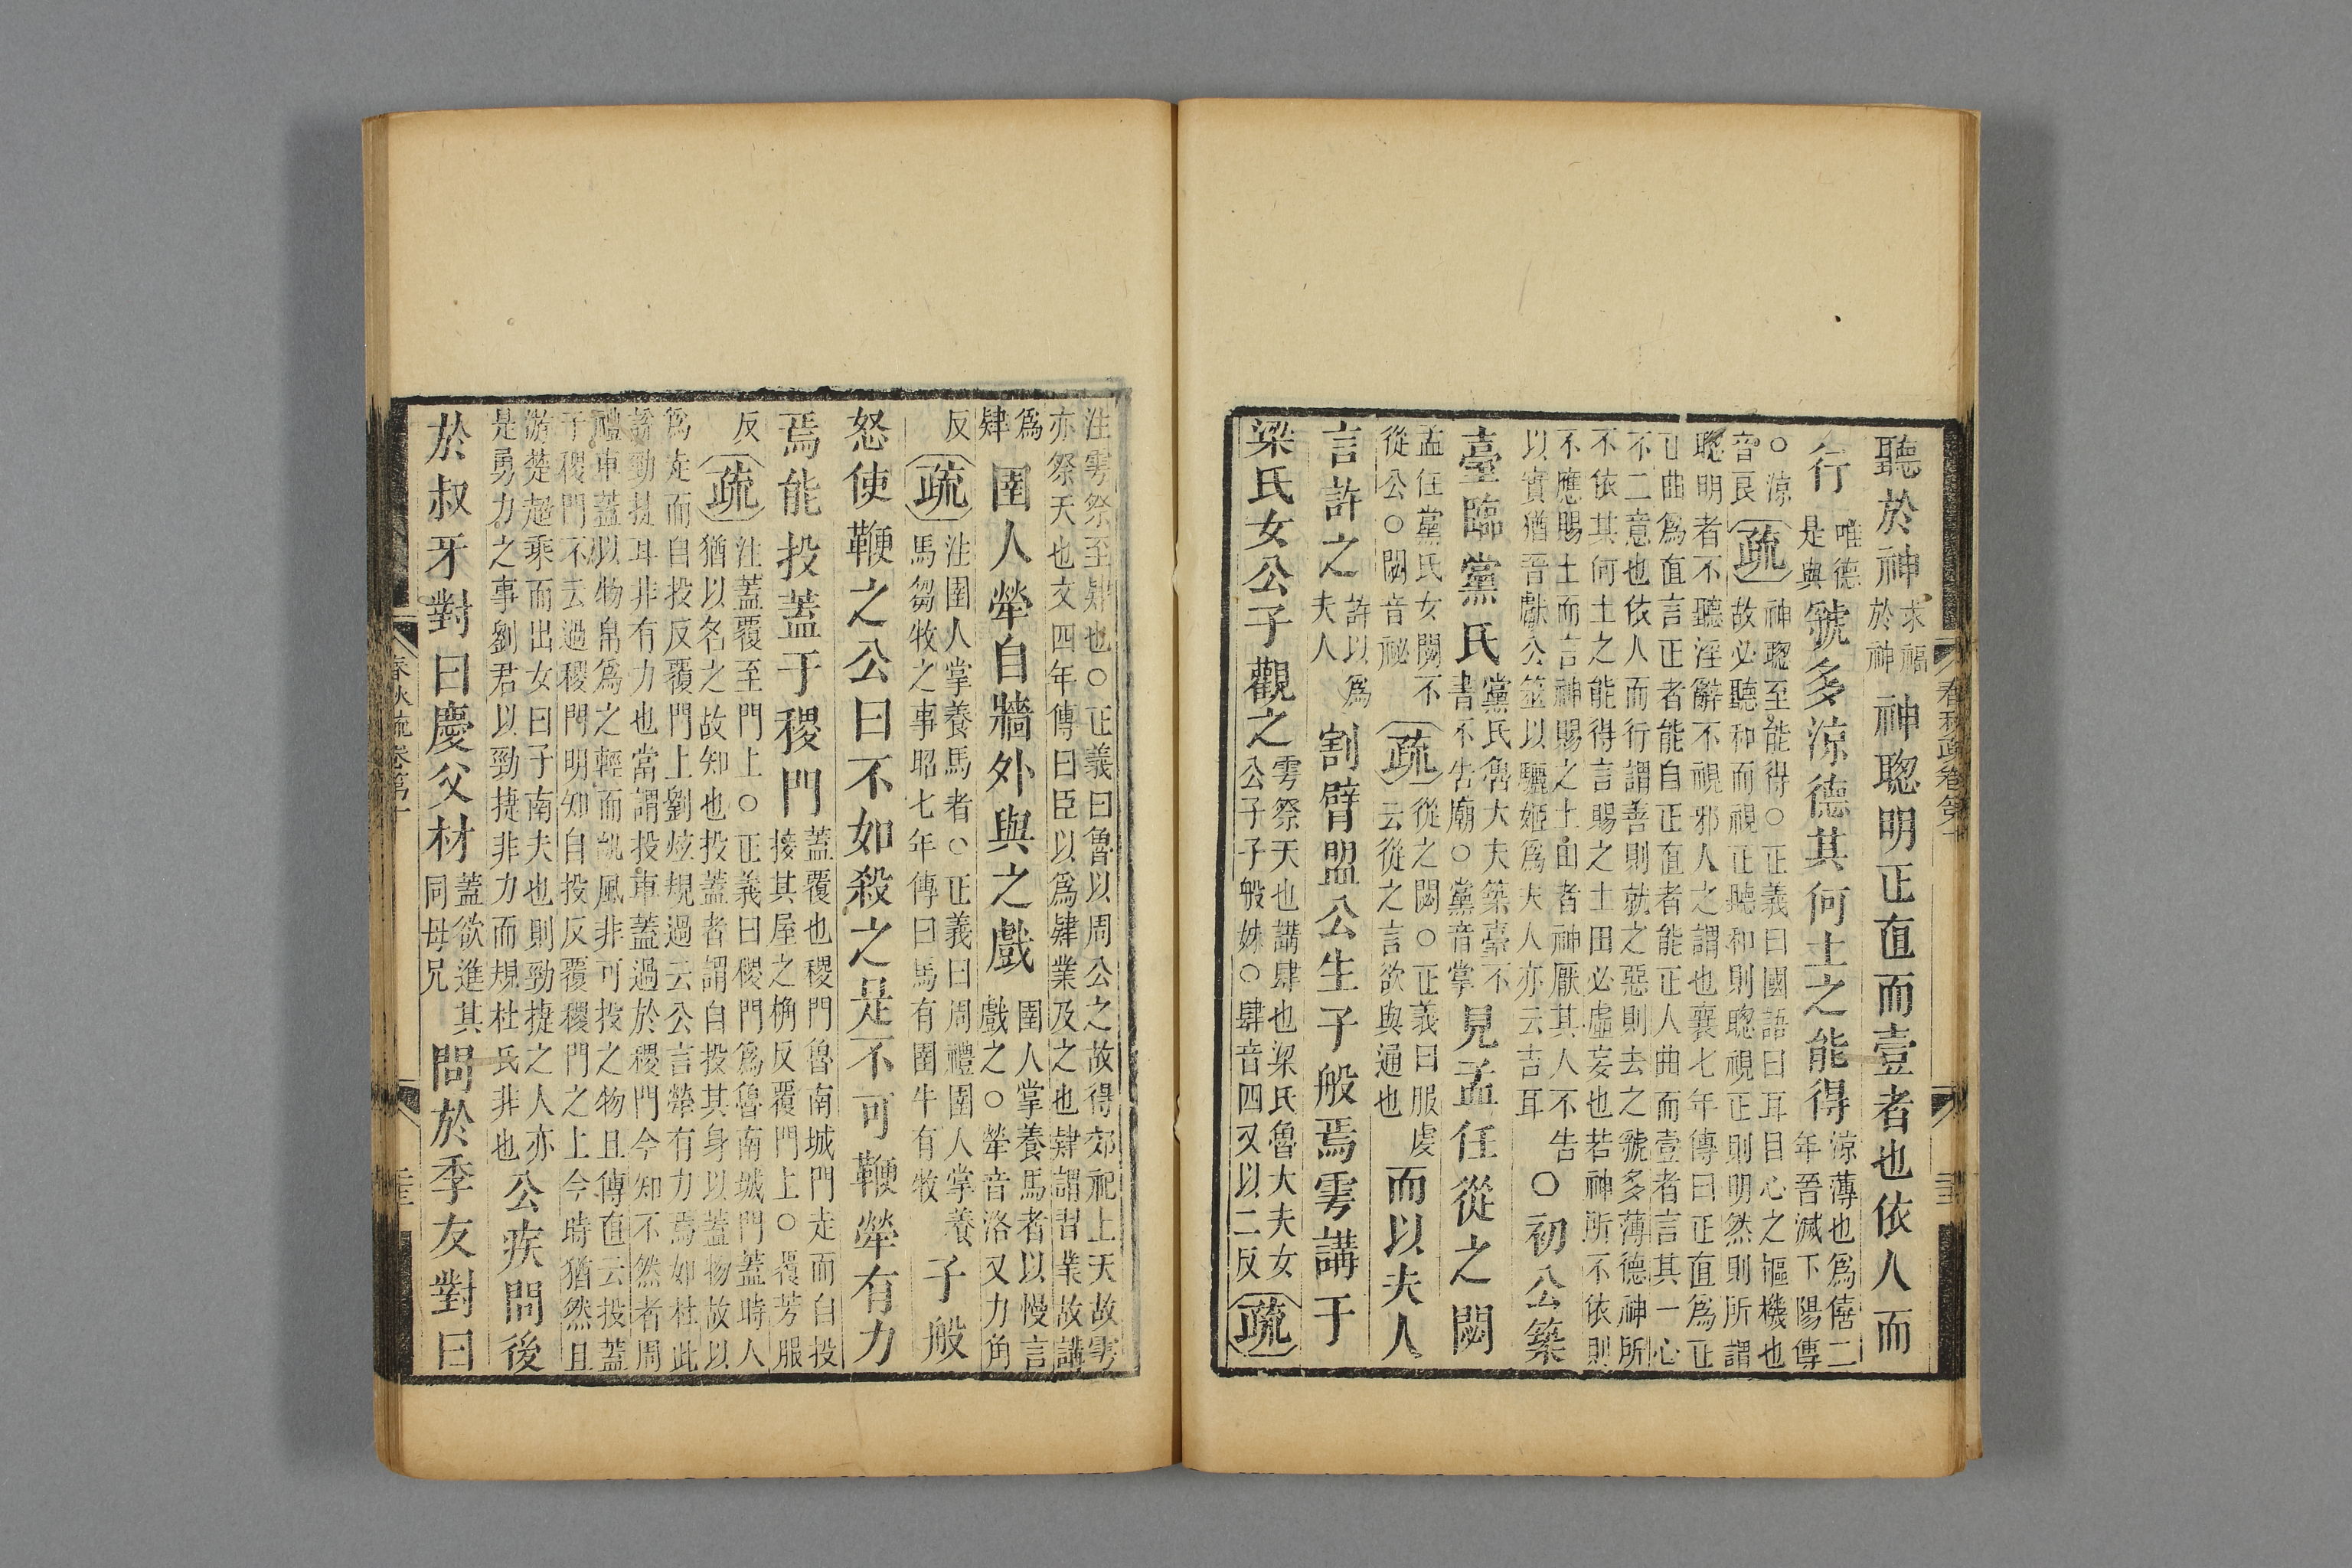 聽於神求福於神神聦明正直而壹者也依人而
行唯德是與虢多涼德其何土之能得涼薄也爲僖二年晉滅下陽傳
○涼音良疏神聦至能得○正義曰國語曰耳目心之樞機也故必聽和而視正聽和則聦視正則明然則所謂
聦明者不聽淫辭不視邪人之謂也襄七年傳曰正直爲正正曲爲直言正者能自正直者能正人曲而壹者言其一心
不二意也依人而行謂善則就之惡則去之虢多薄德神所不依其何土之能得言賜之土田必虛妄也若神所不依則
不應賜土而言神賜之土田者神厭其人不告以實猶晉獻公筮以驪姬爲夫人亦云吉耳○初公築
臺臨黨氏黨氏魯大夫築臺不書不告廟○黨音掌見孟任從之閟
孟任黨氏女閟不從公○閟音祕疏從之閟○正義曰服虔云從之言欲與通也而以夫人
言許之許以爲夫人割臂盟公生子般焉雩講于
梁氏女公子觀之雩祭天也講肆也梁氏魯大夫女公子子般妹○肆音四又以二反疏
注雩祭至肄也○正義曰魯以周公之故得郊祀上天故雩亦祭天也文四年傳曰臣以爲肄業及之也肄謂習業故講
爲肄圉人犖自牆外與之戲圉人掌養馬者以慢言戲之○犖音洛又力角
反疏注圉人掌養馬者○正義曰周禮圉人掌養馬芻牧之事昭七年傳曰馬有圉牛有牧子般
怒使鞭之公曰不如殺之是不可鞭犖有力
焉能投蓋于稷門蓋覆也稷門魯南城門走而自投接其屋之桷反覆門上○覆芳服
反疏注蓋覆至門上○正義曰稷門爲魯南城門蓋時人猶以名之故知也投蓋者謂自投其身以蓋物故以
爲走而自投反覆門上劉炫規過云公言犖有力焉如杜此說勁捷耳非有力也當謂投車蓋過於稷門今知不然者周
禮車蓋以物帛爲之輕而帆風非可投之物且傳直云投蓋于稷門不云過稷門明知自投反覆稷門之上今時猶然且
游楚超乘而出女曰子南夫也則勁捷之人亦是勇力之事劉君以勁捷非力而規杜氏非也公疾問後
於叔牙對曰慶父材蓋欲進其同母兄問於季友對曰
春秋疏卷第十
春秋疏卷第十